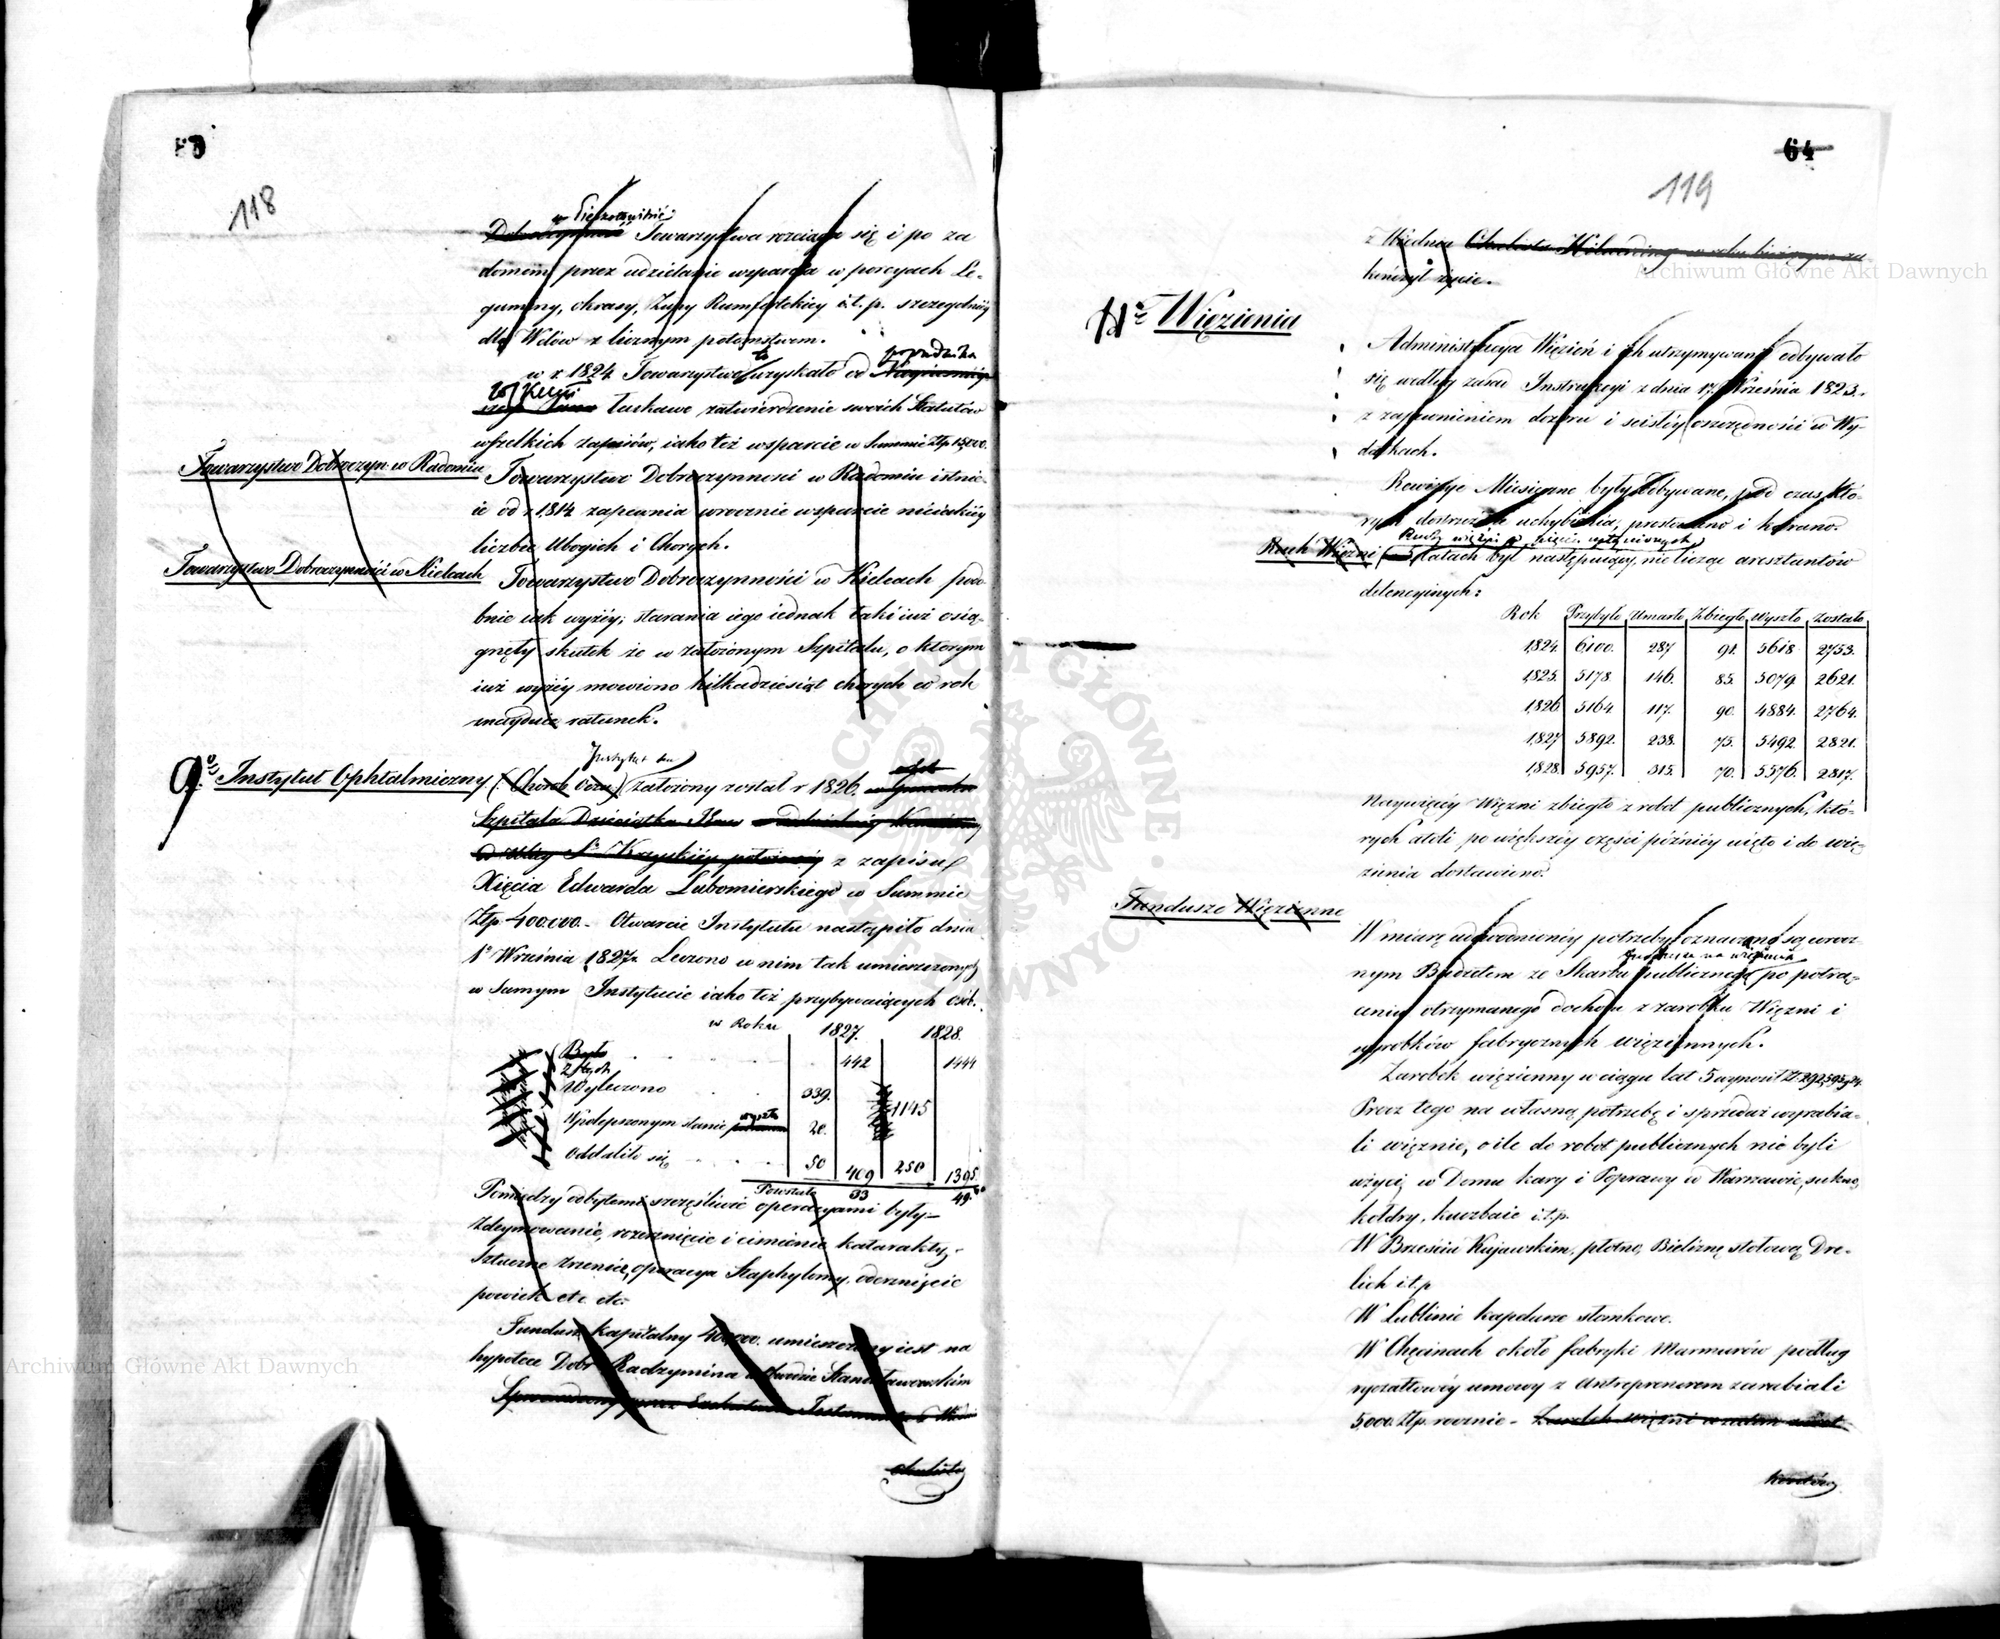 118
w Pieczołowitość
Towarzystwa rozciąga się i po za
domem przez udzielanie wsparcia w porcyach Le-
guminy, okrasy, Zupy Rumfordzkiey i.t.p. szczególniey
dla Wdów z licznym potomstwem.
w r. 1824 Towarzystwo to uzyskało od poprzednika
łaskawe zatwierdzenie swoich Statutów
wszelkich zapisów, iako też wsparcie w Summie Złp. 15,000.
Towarzystwo Dobroczyn: w Radomiu
Towarzystwo Dobroczynności w Radomiu istnie-
ie od r. 1814 zapewnia corocznie wsparcie nieiakiéy
liczbie Ubogich i Chorych.
Towarzystwo Dobroczynności w Kielcach
Towarzystwo Dobroczynności w Kielcach podo-
bnie iak wyżéy; starania iego iednak taki iuż osią-
gnęły skutek że w założonym Szpitalu, o którym
iuż wyżéy mówiono kilkadziesiąt chorych co rok
znayduie ratunek.
9º Instytut Ophtalmiczny
Instytut ten
(: Chorób Oczu) założony został r 1826.
Szpitala Dzieciątka Jezus
z zapisu
Xięcia Edwarda Lubomirskiego w Summie
Złp. 400.000. - Otwarcie Instytutu nastąpiło dnia
1º Września 1827r. Leczono w nim tak umieszczonych
w samym Instytucie iako też przybywaiących osób.
w Roku 1827. 1828.
Było 442 1444
Z tych
Wyleczono 339. 1145
W polepszonym stanie wyszło 20.
Oddaliło się 50 409 250 1395.
Pozostało 33 49.
Pomiędzy odbytemi szczęśliwie operacyami były -
Zdeymowanie, rozcznięcie i cimienie katarakty,
Sztuczne źrenice, operacya Staphylomy, oderznięcie
powiek etc etc:
Fundusz kapitalny 40,000. umieszczony iest na
hypotece Dóbr Radzymina w Obwodzie Stanisławowskim
okulista
64
119
z Wiednia Okulista
kończył życie.
Hº Więzienia
Administracya Więzień i ich utrzymywanie odbywało
się według zasad Instrukcyi z dnia 17 Września 1823.
z zapewnieniem dozoru i scisłéy oszczędności w Wy-
datkach.
Rewizye Miesięczne były odbywane, pod czas któ-
rych dostrzeżone uchybienia, prostowano i karano.
Ruch Więzni
Ruch więzni w pięciu upłynionych
latach był następuiący, nie licząc aresztantów
detencyinych:
Rok Przybyło Umarło Zbiegło Wyszło Zostało
1824. 6100. 287 91. 5618 2753.
1825. 5178. 146. 85. 5079. 2621.
1826 5164 117. 90. 4884. 2764.
1827 5892. 238. 75. 5492. 2821.
1828. 5957. 315. 70. 5576. 2817.
Naywięcéy Więzni zbiegło z robot publicznych, któ-
rych atoli po większéy części późniéy uięto i do wię-
zienia dostawiono.
Fundusze Więzienne
W miarę udowodnionéy potrzeby oznaczone są coroc-
nym Budżetem ze Skarbu publicznego fundusze na więzienia po potrą-
ceniu otrzymanego dochodu z zarobku Więzni i
wyrobków fabrycznych więziennych.
Zarobek więzienny w ciągu lat 5 wynosił Zł 292,595,24.
Prócz tego na własną potrzebę i sprzedaż wyrabia-
li więznie, o ile do robót publicznych nie byli
użyci, w Domu Kary i Poprawy w Warszawie, sukno,
kołdry, kuczbaie i.t.p.
W Brześciu Kujawskim, płótno, Bieliznę stołową Dre-
lich i.t.p
W Lublinie kapelusze słomkowe.
W Chęcinach około fabryki Marmurów podług
ryczałtowéy umowy z Antreprenerem zarabiali
5,000 Złp. rocznie -
Archiwum Główne Akt Dawnych
Archiwum Główne Akt Dawnych
ARCHIWUM GŁÓWNE AKT DAWNYCH